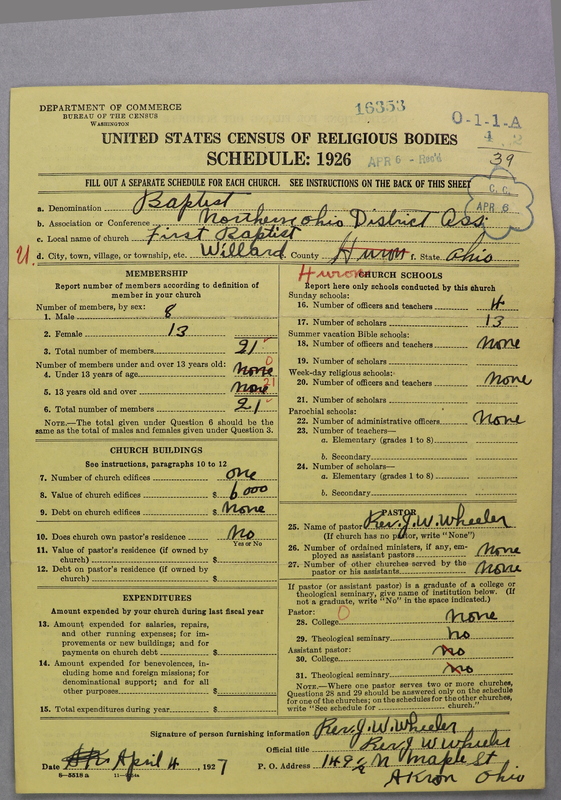 DEPARTMENT OF COMMERCE
BUREAU OF THE CENSUS
WASHINGTON
16353
O-1-1-A
UNITED STATES CENSUS OF RELIGIOUS BODIES
SCHEDULE: 1926
APR 6 - Rec'd
39
FILL OUT A SEPARATE SCHEDULE FOR EACH CHURCH. SEE INSTRUCTIONS ON THE BACK OF THIS SHEET
C. C.
APR 6
a. Denomination Baptist
b. Association or Conference Northern Ohio District Ass.
c. Local name of church First Baptist
U. d. City, town, village, or township, etc. Willard e. County Huron f. State Ohio
Huron
MEMBERSHIP
Report number of members according to definition of
member in your church
Number of members, by sex:
1. Male 8
2. Female 13
3. Total number of members 21
Number of members under and over 13 years old:
4. Under 13 years of age None 0
5. 13 years old and over None 21
6. Total number of members 21
NOTE.—The total given under Question 6 should be the
same as the total of males and females given under Question 3.
CHURCH BUILDINGS
See instructions, paragraphs 10 to 12
7. Number of church edifices one
8. Value of church edifices $ 6000
9. Debt on church edifices $ None
10. Does church own pastor's residence No
Yes or No
11. Value of pastor's residence (if owned by
church) $
12. Debt on pastor's residence (if owned by
church) $
EXPENDITURES
Amount expended by your church during last fiscal year
13. Amount expended for salaries, repairs,
and other running expenses; for im-
provements or new buildings; and for
payments on church debt $
14. Amount expended for benevolences, in-
cluding home and foreign missions; for
denominational support; and for all
other purposes $
15. Total expenditures during year $
CHURCH SCHOOLS
Report here only schools conducted by this church
Sunday schools:
16. Number of officers and teachers 4
17. Number of scholars 13
Summer vacation Bible schools:
18. Number of officers and teachers None
19. Number of scholars
Week-day religious schools:
20. Number of officers and teachers None
21. Number of scholars
Parochial schools:
22. Number of administrative officers None
23. Number of teachers—
a. Elementary (grades 1 to 8)
b. Secondary
24. Number of scholars—
a. Elementary (grades 1 to 8)
b. Secondary
PASTOR
25. Name of pastor Rev. J. W. Wheeler
(If church has no pastor, write "None")
26. Number of ordained ministers, if any, em-
ployed as assistant pastors None
27. Number of other churches served by the
pastor or his assistants None
If pastor (or assistant pastor) is a graduate of a college or
theological seminary, give name of institution below. (If
not a graduate, write "No" in the space indicated.)
Pastor:
28. College 0 None
29. Theological seminary No
Assistant pastor:
30. College No
31. Theological seminary No
NOTE.—Where one pastor serves two or more churches,
Questions 28 and 29 should be answered only on the schedule
for one of the churches; on the schedules for the other churches,
write "See schedule for church."
Signature of person furnishing information Rev. J. W. Wheeler
Official title Rev. J. W. Wheeler
Date April 4, 1927 P. O. Address 149 N Maple St
8—5518 a
Akron Ohio